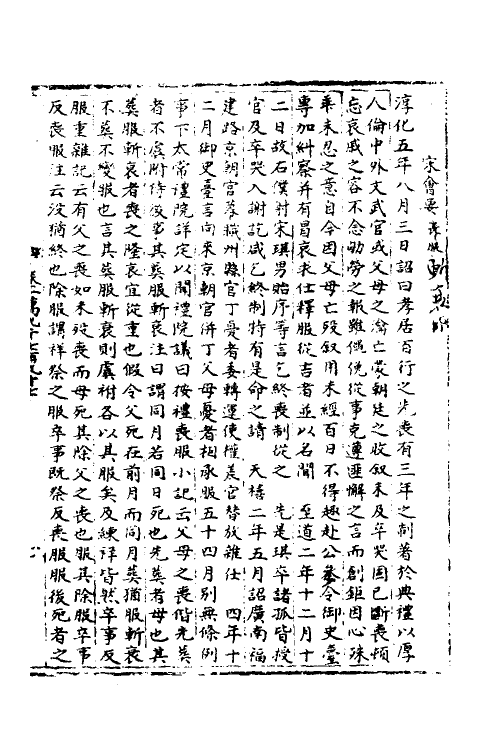 宋會要 喪服
淳化五年八月三日詔曰孝居百行之先喪有三年之制著於典禮以厚
人倫中外文武官或父母之淪亡蒙朝廷之收叙未及卒哭固已斷喪頓
忘哀戚之容不念劬勞之報雖僶俛從事克遵匪懈之言而創鉅因心殊
乖未忍之意自今因父母亡殁叙用未經百日不得趣赴公參令御史臺
專加糾察并有冒哀求仕釋服從吉者並以名聞 至道二年十二月十
二日故右僕射宋琪男貽序等言乞終喪制從之 先是琪卒諸孤皆授
官及卒哭入謝訖咸乞終制特有是命之請 天禧二年五月詔廣南福
建路京朝官幕職州縣官丁憂者委轉運使權差官替放離任 四年十
二月御史臺言向來京朝官併丁父母憂者相承服五十四月別無條例
事下太常禮院詳定以聞禮院議曰按禮喪服小記云父母之喪偕先葬
者不虞附待後事其葬服斬衰注曰謂同月若同日死也先葬者母也其
葬服斬衰者喪之隆哀宜從重也假令父死在前月而同月葬猶服斬衰
不葬不變服也言其葬服斬衰則虞祔各以其服矣及練祥皆然卒事反
服重雜記云有父之喪如未殁喪而母死其除父之喪也服其除服卒事
反喪服注云没猶終也除服謂祥祭之服卒事既祭反喪服服後死者之